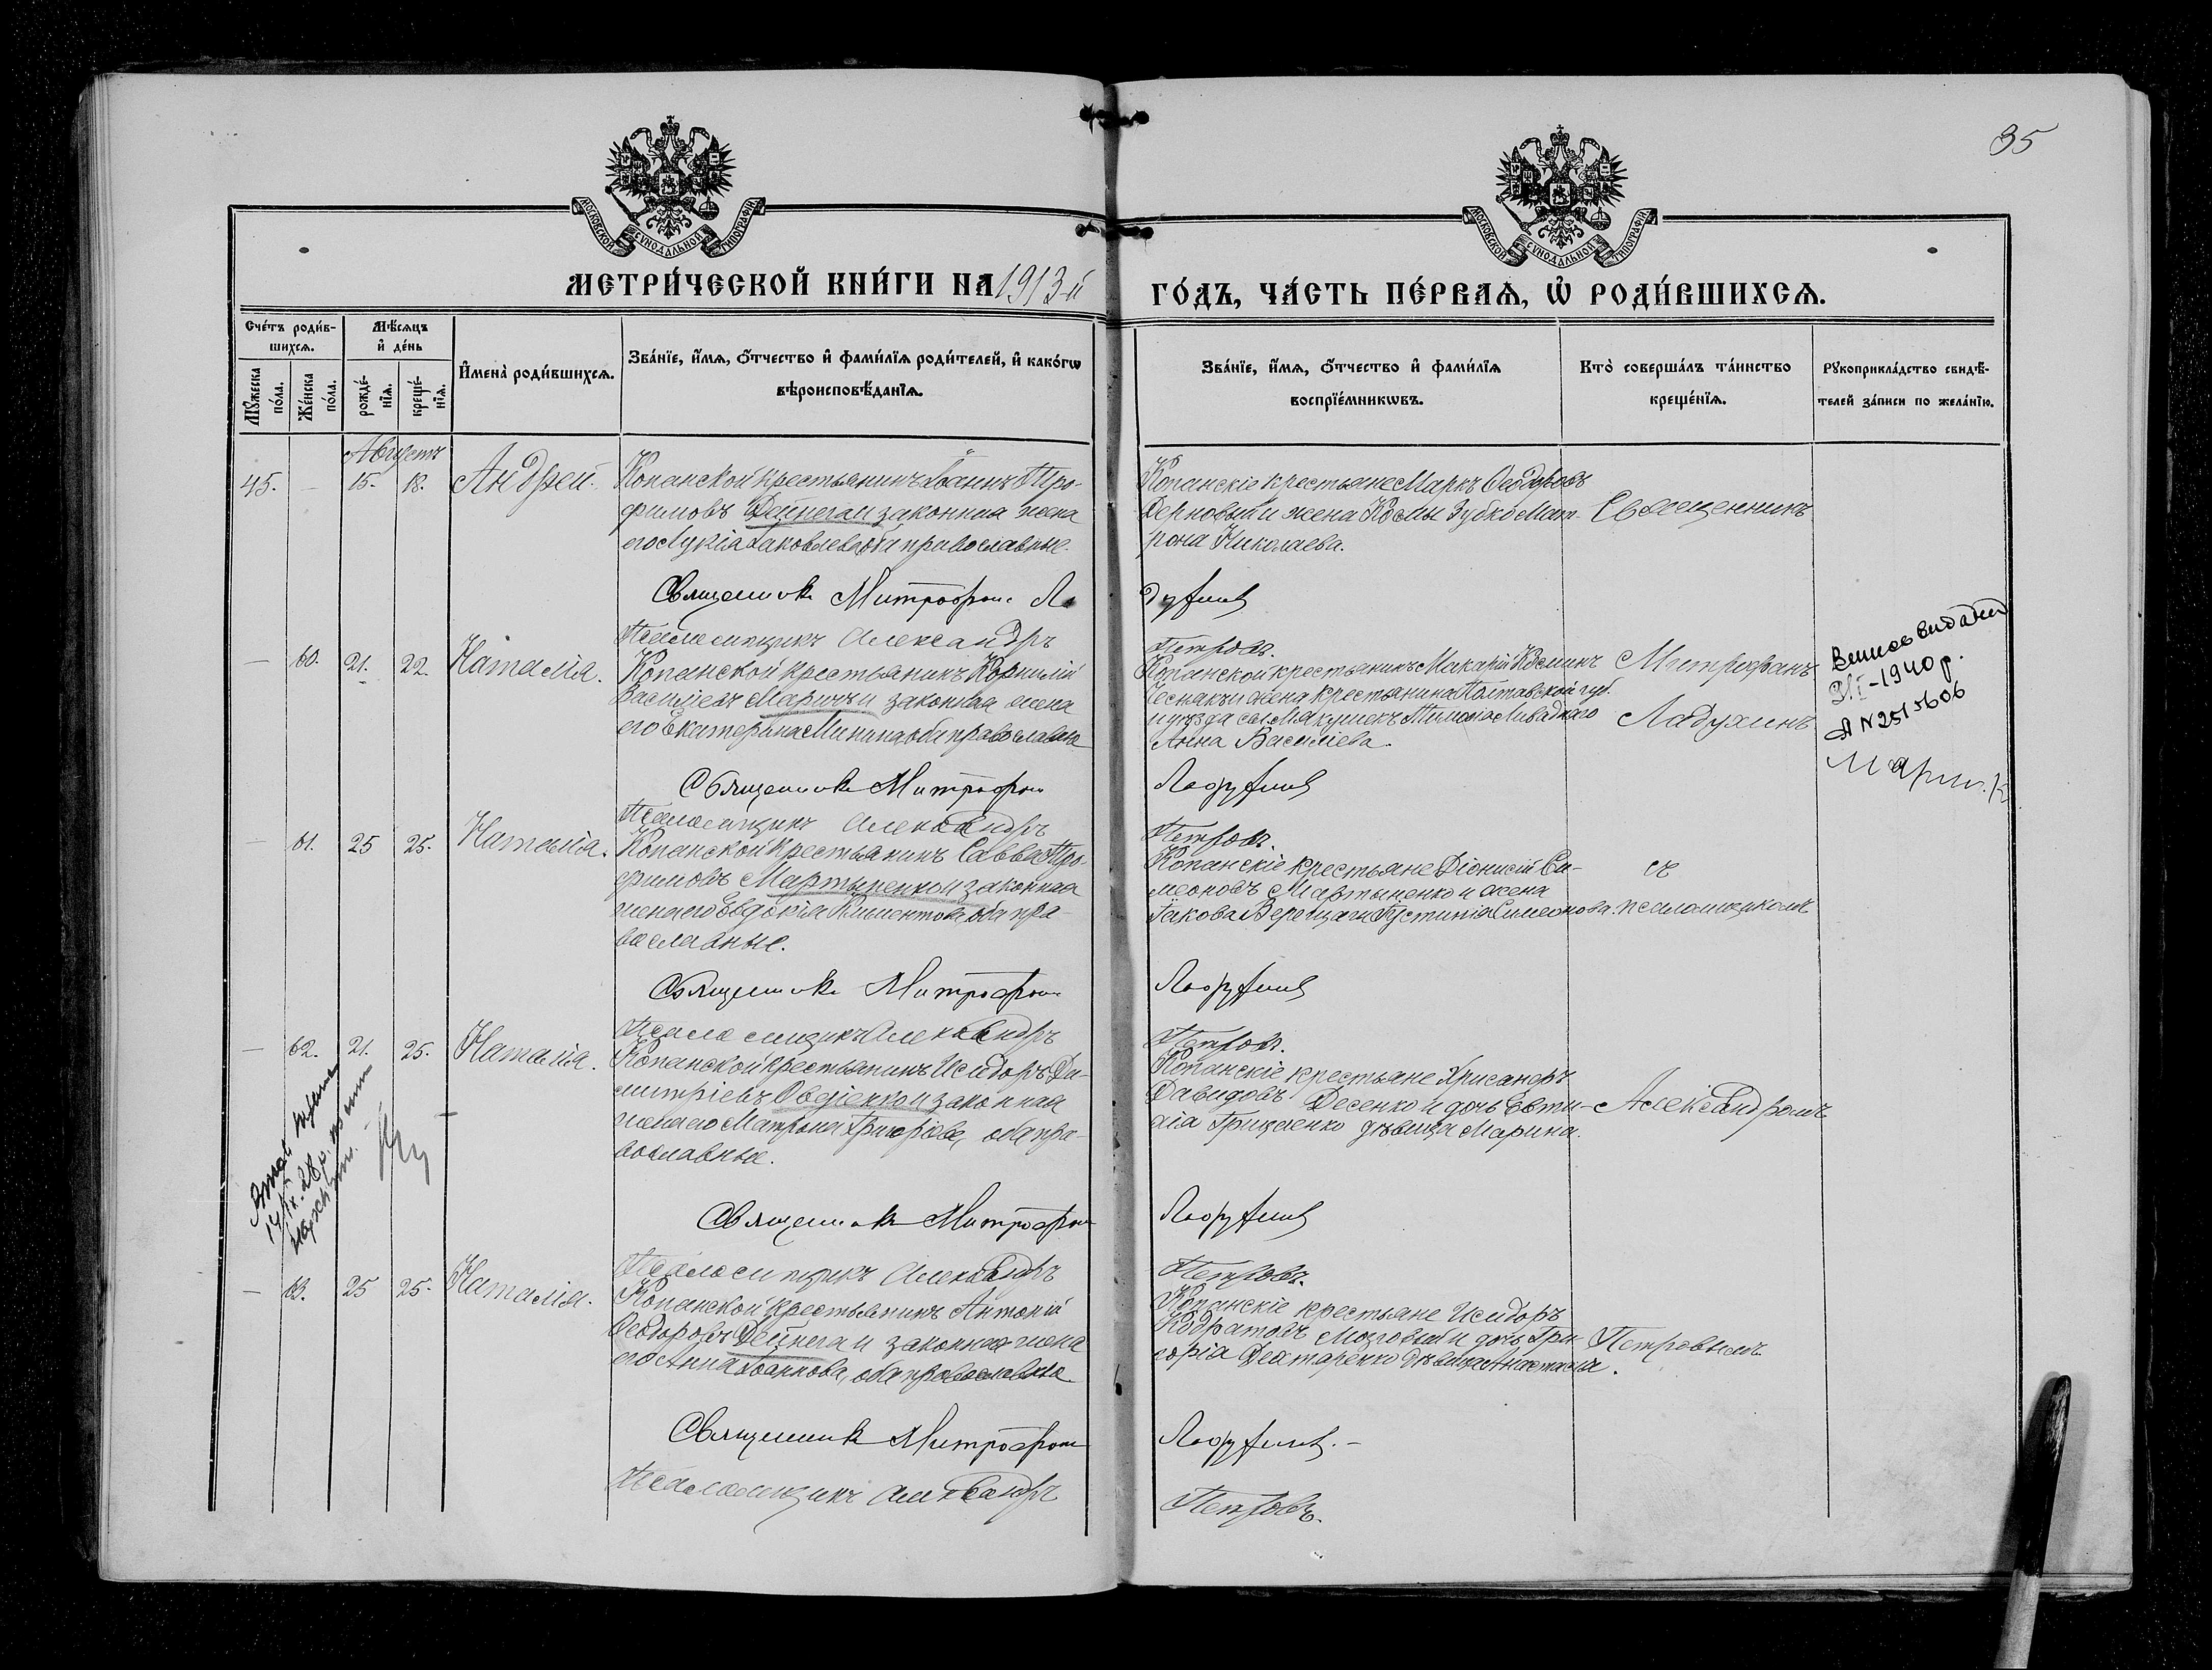 35
МОСКОВСКОЙ СѴНОДАЛЬНОЙ ТИПОГРАФІИ
МОСКОВСКОЙ СѴНОДАЛЬНОЙ ТИПОГРАФІИ
МЕТРИ́ЧЕСКОЙ КНИ́ГИ НА 1913-й
ГО́ДЪ, ЧА́СТЬ ПЕ́РВАѦ, Ѡ҆ РОДИ́ВШИХСѦ.
Сче́тъ роди́в-
шихсѧ.
Мѣ́сѧцъ
и҆ де́нь
Мꙋ́жеска
по́ла.
Же́нска
по́ла.
рожде́-
нїѧ.
креще́-
нїѧ.
И҆мена̀ роди́вшихсѧ.
Зва́нїе, и҆́мѧ, ѻ҆́тчество и҆ фами́лїѧ роди́телей, и҆ како́гѡ
вѣроисповѣ́данїѧ.
Зва́нїе, и҆́мѧ, ѻ҆́тчество и҆ фами́лїѧ
воспрїе́мникѡвъ.
Кто̀ соверша́лъ та́инство
креще́нїѧ.
Рꙋкоприкла́дство свидѣ́-
телей за́писи по жела́нїю.
Августъ
45. — 15. 18. Андрей.
Копанской крестьянинъ Іоаннъ Тро-
фимовъ Дейнега и законная жена
его Лукія Іаковлева оба православные.
Копанскіе крестьяне Маркъ Ѳеодоровъ
Дерновый и жена Космы Зубко Мат-
рона Николаева.
Священникъ
Священникъ Митрофанъ Ла
духинъ
Псаломщикъ Александръ
Петровъ.
— 60. 21. 22. Наталія.
Копанской крестьянинъ Корнилій
Васильевъ Маричъ и законная жена
его Екатерина Минина оба православные
Копанской крестьянинъ Макарій Косминъ
Чеснакъ и жена крестьянина Полтавской губ.
и уѣзда сел. Мякушекъ Тимоѳея Ливадняго
Анна Василіева.
Митрофанъ
Ладухинъ
видано
-1940 р.
Священникъ Митрофанъ
Ладухинъ
Псаломщикъ Александръ
Петровъ.
— 61. 25 25. Наталія.
Копанской крестьянинъ Савва Тро-
фимовъ Мартыненко и законная
жена его Евдокія Климентова, оба пра-
вославные.
Копанскіе крестьяне Діонисій Си-
меоновъ Мартыненко и жена
Іакова Верещаги Іустинія Симеонова.
съ
псаломщикомъ
Священникъ Митрофанъ
Ладухинъ
Псаломщикъ Александръ
Петровъ.
— 62. 21. 25. Наталія.
Копанской крестьянинъ Исидоръ Ди-
митріевъ Овдіенко и законная
жена его Матрона Григоріева, оба пра-
вославные.
Копанскіе крестьяне Хрисанѳъ
Давидовъ Десенко и дочь Евти-
хія Гриценко дѣвица Марина.
Александромъ
Священникъ Митрофанъ
Ладухинъ
Псаломщикъ Александръ
Петровъ.
— 63. 25 25. Наталія.
Копанской крестьянинъ Антоній
Ѳеодоровъ Дейнега и законная жена
его Анна Іоаннова, оба православные.
Копанскіе крестьяне Исидоръ
Кодратовъ Мозговый и дочь Гри-
горія Дехтаренко дѣвица Анастасія.
Петровымъ
Священникъ Митрофанъ
Ладухинъ. —
Псаломщикъ Александръ
Петровъ.